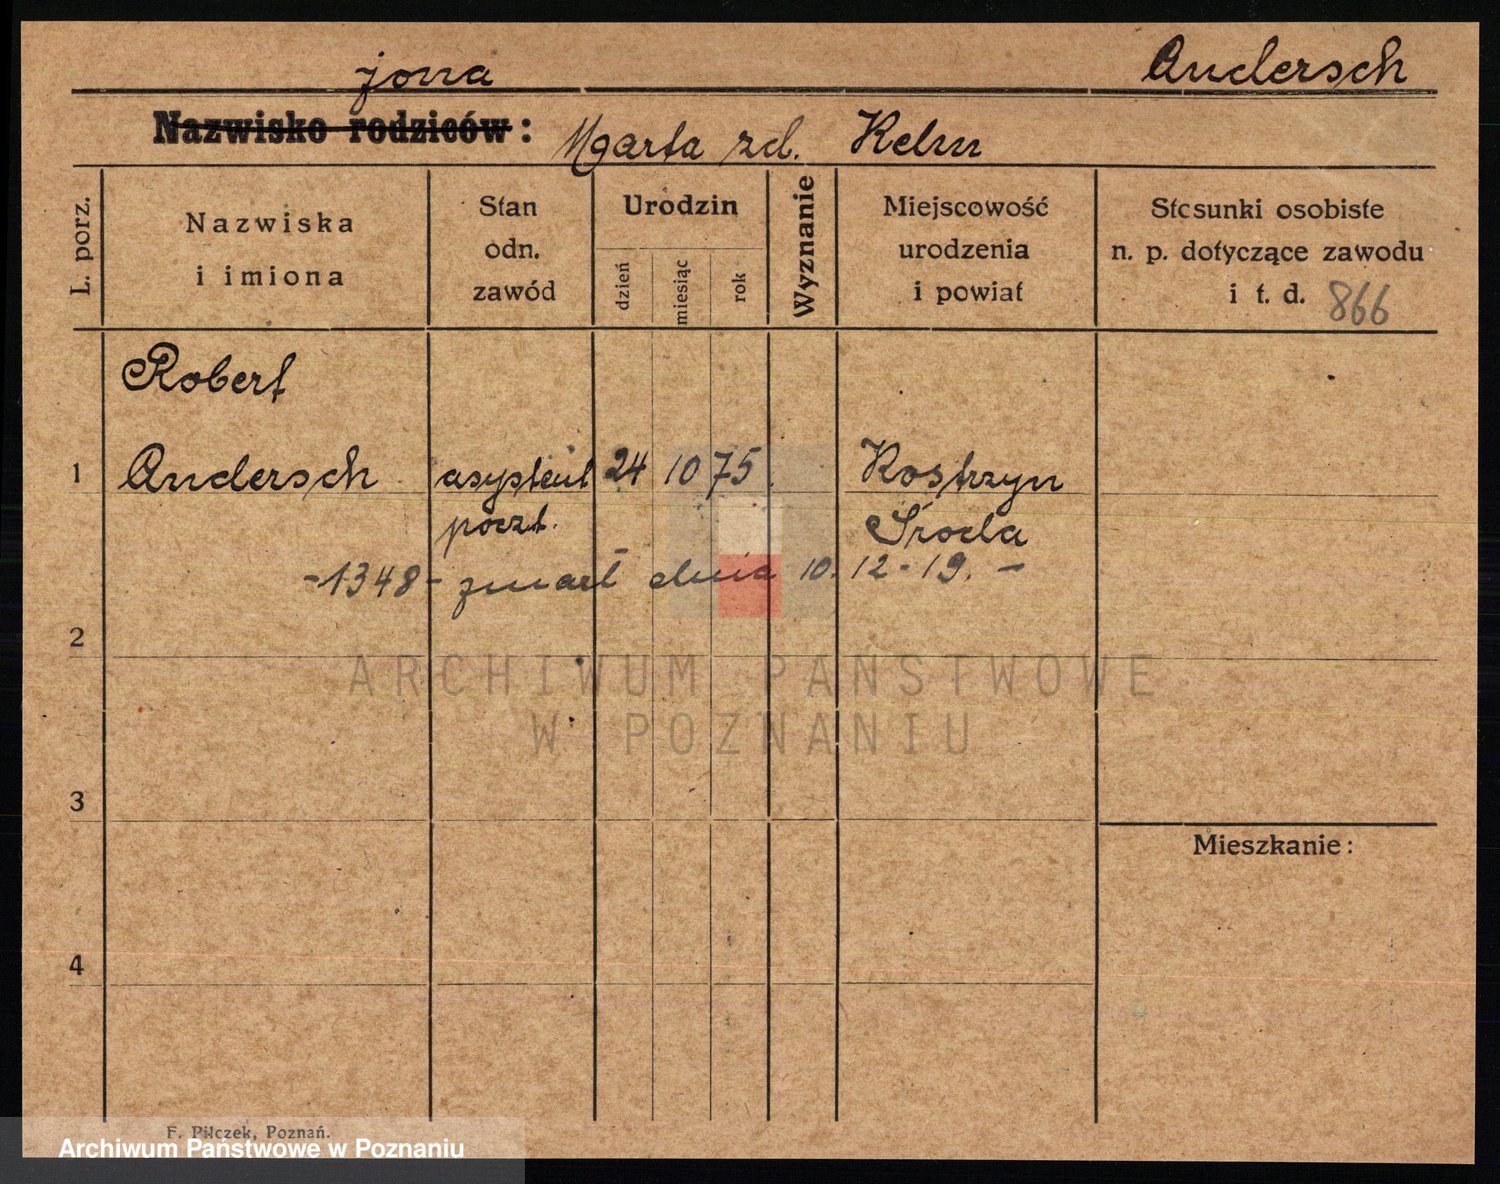 żona Andersch
Nazwisko rodziców: Marta zd. Kelm
L. porz.
Nazwiska
i imiona
Stan
odn.
zawód
Urodzin
dzień
miesiąc
rok
Wyznanie
Miejscowość
urodzenia
i powiat
Stosunki osobiste
n. p. dotyczące zawodu
i t. d. 866
Robert
1 Andersch asystent 24 10 75. Kostrzyn
poczt. Środa
-1348- zmarł dnia 10.12-19. -
2
ARCHIWUM PAŃSTWOWE
W POZNANIU
3
Mieszkanie:
4
F. Pilczek, Poznań.
Archiwum Państwowe w Poznaniu